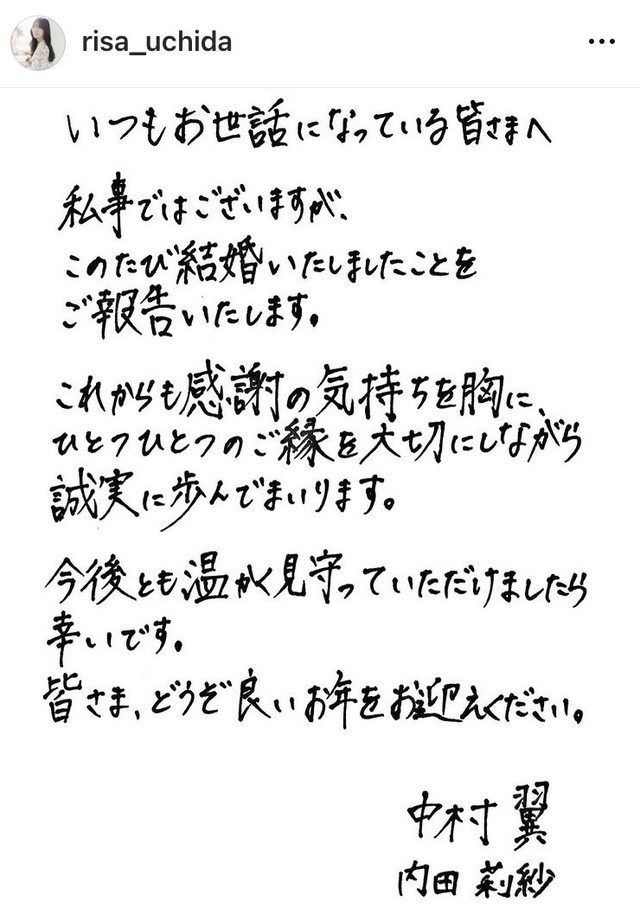 risa_uchida
いつもお世話になっている皆さまへ
私事ではございますが、
このたび結婚いたしましたことを
ご報告いたします。
これからも感謝の気持ちを胸に、
ひとつひとつのご縁を大切にしながら
誠実に歩んでまいります。
今後とも温かく見守っていただけましたら
幸いです。
皆さま、どうぞ良いお年をお迎えください。
中村 翼
内田 莉紗